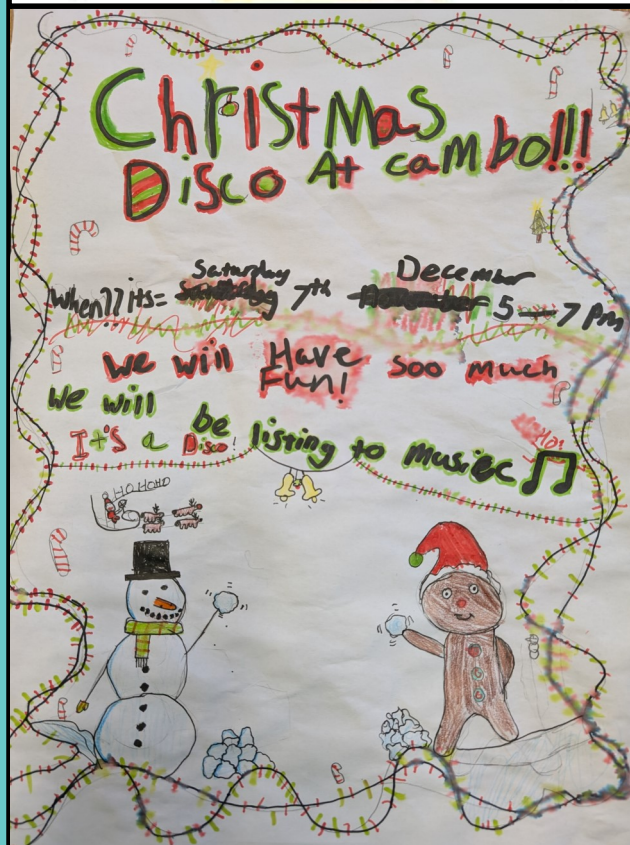 Christmas
Disco At cambo!!!
When?? its= Saturday 7th December 5—7 pm
We will Have Fun! Soo Much
We will be listing to musiec
It's a Disco!
Ho!
HO HO HO